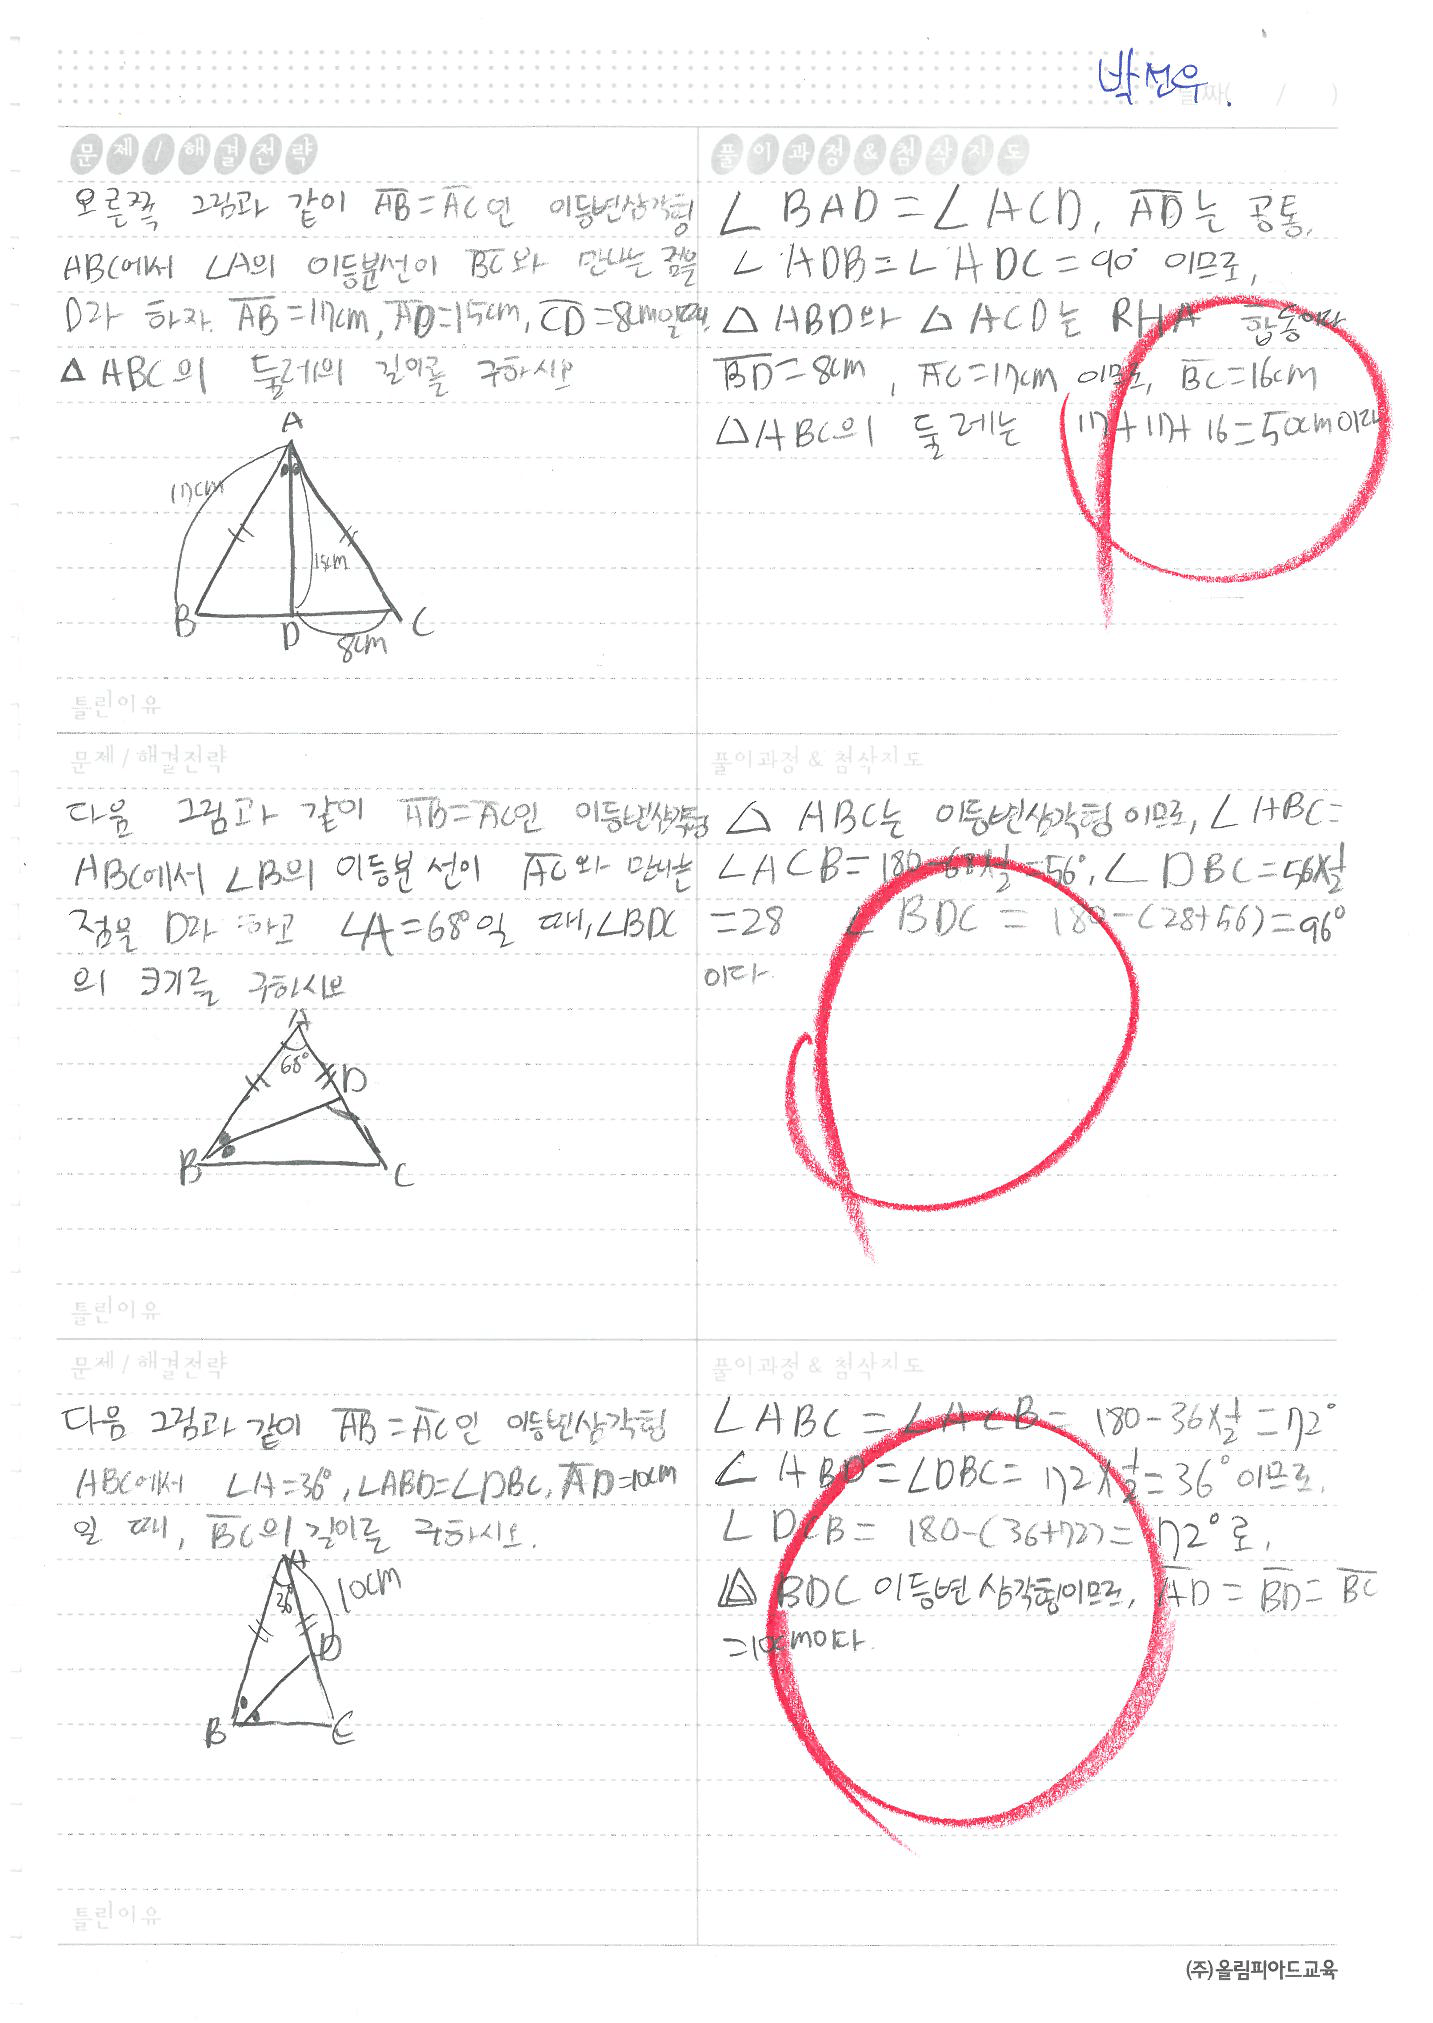 박선우.
날짜( / )
문제/해결전략
오른쪽 그림과 같이 AB=AC인 이등변삼각형
ABC에서 ∠A의 이등분선이 BC와 만나는 점을
D라 하자. AB=17cm, AD=15cm, CD=8cm일때.
△ABC의 둘레의 길이를 구하시오
A
17cm
15cm
B
D
C
8cm
틀린이유
풀이과정&첨삭지도
∠BAD=∠ACD, AD는 공통,
∠ADB=∠ADC=90° 이므로,
△ABD와 △ACD는 RHA 합동이다
BD=8cm, AC=17cm 이므로, BC=16cm
△ABC의 둘레는 17+17+16=50cm이다
문제/해결전략
다음 그림과 같이 AB=AC인 이등변삼각형
ABC에서 ∠B의 이등분선이 AC와 만나는
점을 D라 하고 ∠A=68°일 때, ∠BDC
의 크기를 구하시오
A
68°
D
B
C
틀린이유
풀이과정&첨삭지도
△ABC는 이등변삼각형이므로, ∠ABC=
∠ACB=180-68×½=56°, ∠DBC=56×½
=28 ∠BDC=180-(28+56)=96°
이다.
문제/해결전략
다음 그림과 같이 AB=AC인 이등변삼각형
ABC에서 ∠A=36°, ∠ABD=∠DBC, AD=10cm
일 때, BC의 길이를 구하시오.
A
36°
10cm
D
B
C
틀린이유
풀이과정&첨삭지도
∠ABC=∠ACB=180-36×½=72°
∠ABD=∠DBC=72×½=36°이므로,
∠DCB=180-(36+72)=72°로,
△BDC 이등변 삼각형이므로, AD=BD=BC
=10cm이다.
(주)올림피아드교육